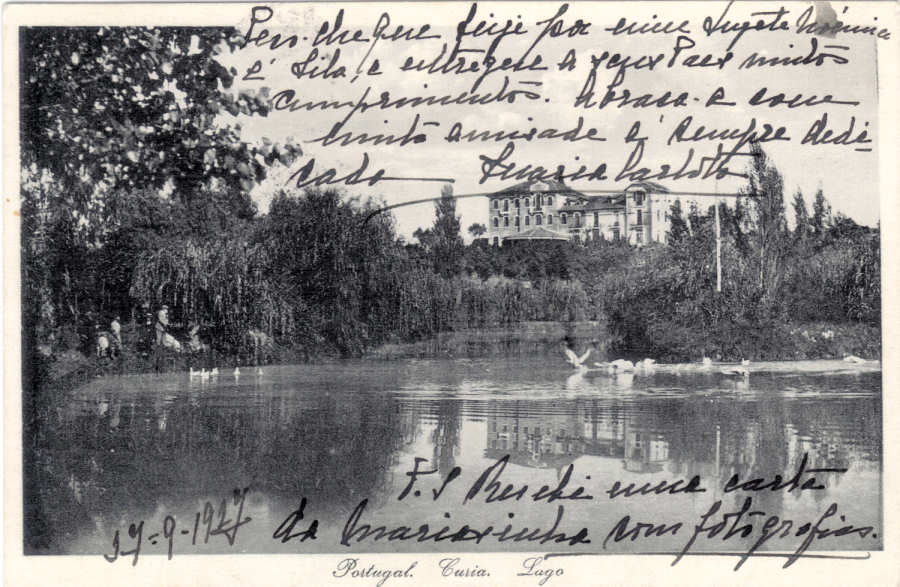 Pero che que
por uma
á Lila, e entregue a seus Paes muitos
cumprimentos. Abraça-a com
muita amizade a sempre dedi
cada Maria Carlota
P.S. Recebi uma carta
da Mariasinha com fotografias.
27-9-1927
Portugal. Curia. Lago